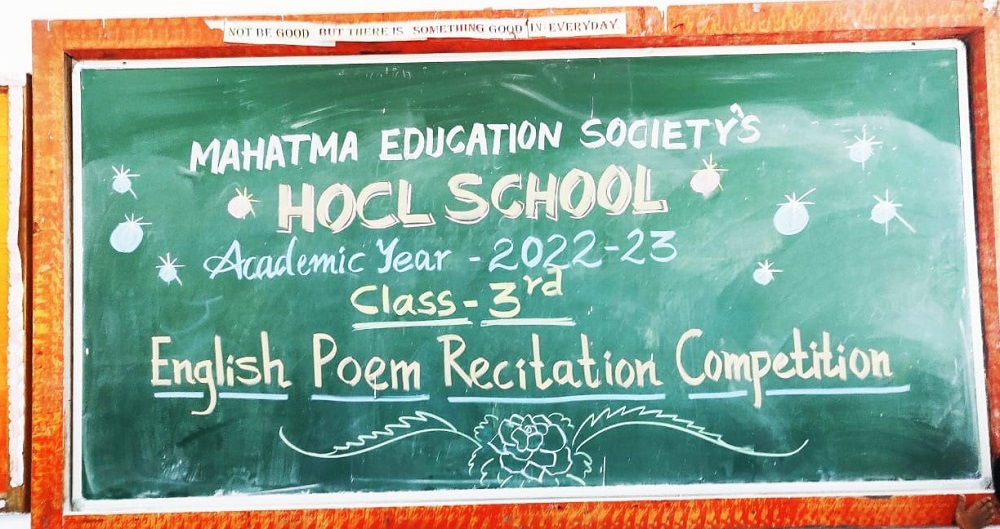 NOT BE GOOD BUT THERE IS SOMETHING GOOD IN EVERYDAY
MAHATMA EDUCATION SOCIETY'S
HOCL SCHOOL
Academic Year - 2022-23
Class - 3rd
English Poem Recitation Competition